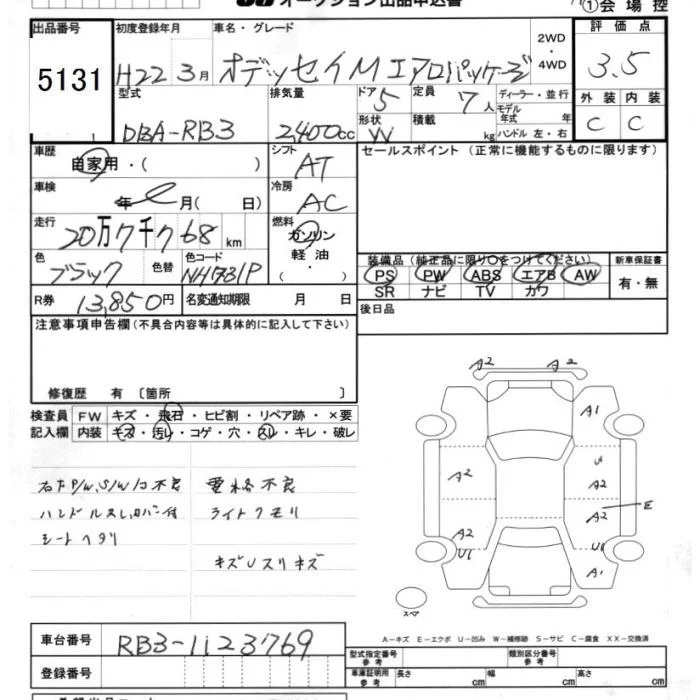 オークション出品申込書
①会場控
出品番号
5131
初度登録年月
H22 3月
車名・グレード
オデッセイMエアロパッケージ
2WD・4WD
評価点
3.5
外装 内装
C C
型式
DBA-RB3
排気量
2,400cc
ドア 5
形状 W
定員 7人
積載 kg
ディーラー・並行
モデル年式 年
ハンドル 左・右
車歴
自家用・( )
シフト
AT
セールスポイント (正常に機能するものに限ります)
車検
年 月( 日)
冷房
AC
走行
20万7千768km
燃料
ガソリン
軽油
・( )
色
ブラック
色替
色コード
NH731P
装備品 (純正品に限り○をつけてください)
PS PW ABS エアB AW
SR ナビ TV カワ
新車保証書
有・無
R券 13,850円
名変通知期限 月 日
後日品
注意事項申告欄(不具合内容等は具体的に記入して下さい)
修復歴 有 〔箇所 〕
検査員記入欄
FW キズ・飛石・ヒビ割・リペア跡・×要
内装 キズ・汚れ・コゲ・穴・スレ・キレ・破レ
不良
電格不良
ハンドルスレ,カバー付
ライトクモリ
シートヘタリ
キズUスリキズ
A2 A2
A1
A2
U
A2 E
A2
U1 U1
A1
スペア
A-キズ E-エクボ U-凹み W-補修跡 S-サビ C-腐食 XX-交換済
車台番号
RB3-1123769
登録番号
型式指定番号 参考
類別区分番号 参考
車庫証明用 参考
長さ cm
幅 cm
高さ cm